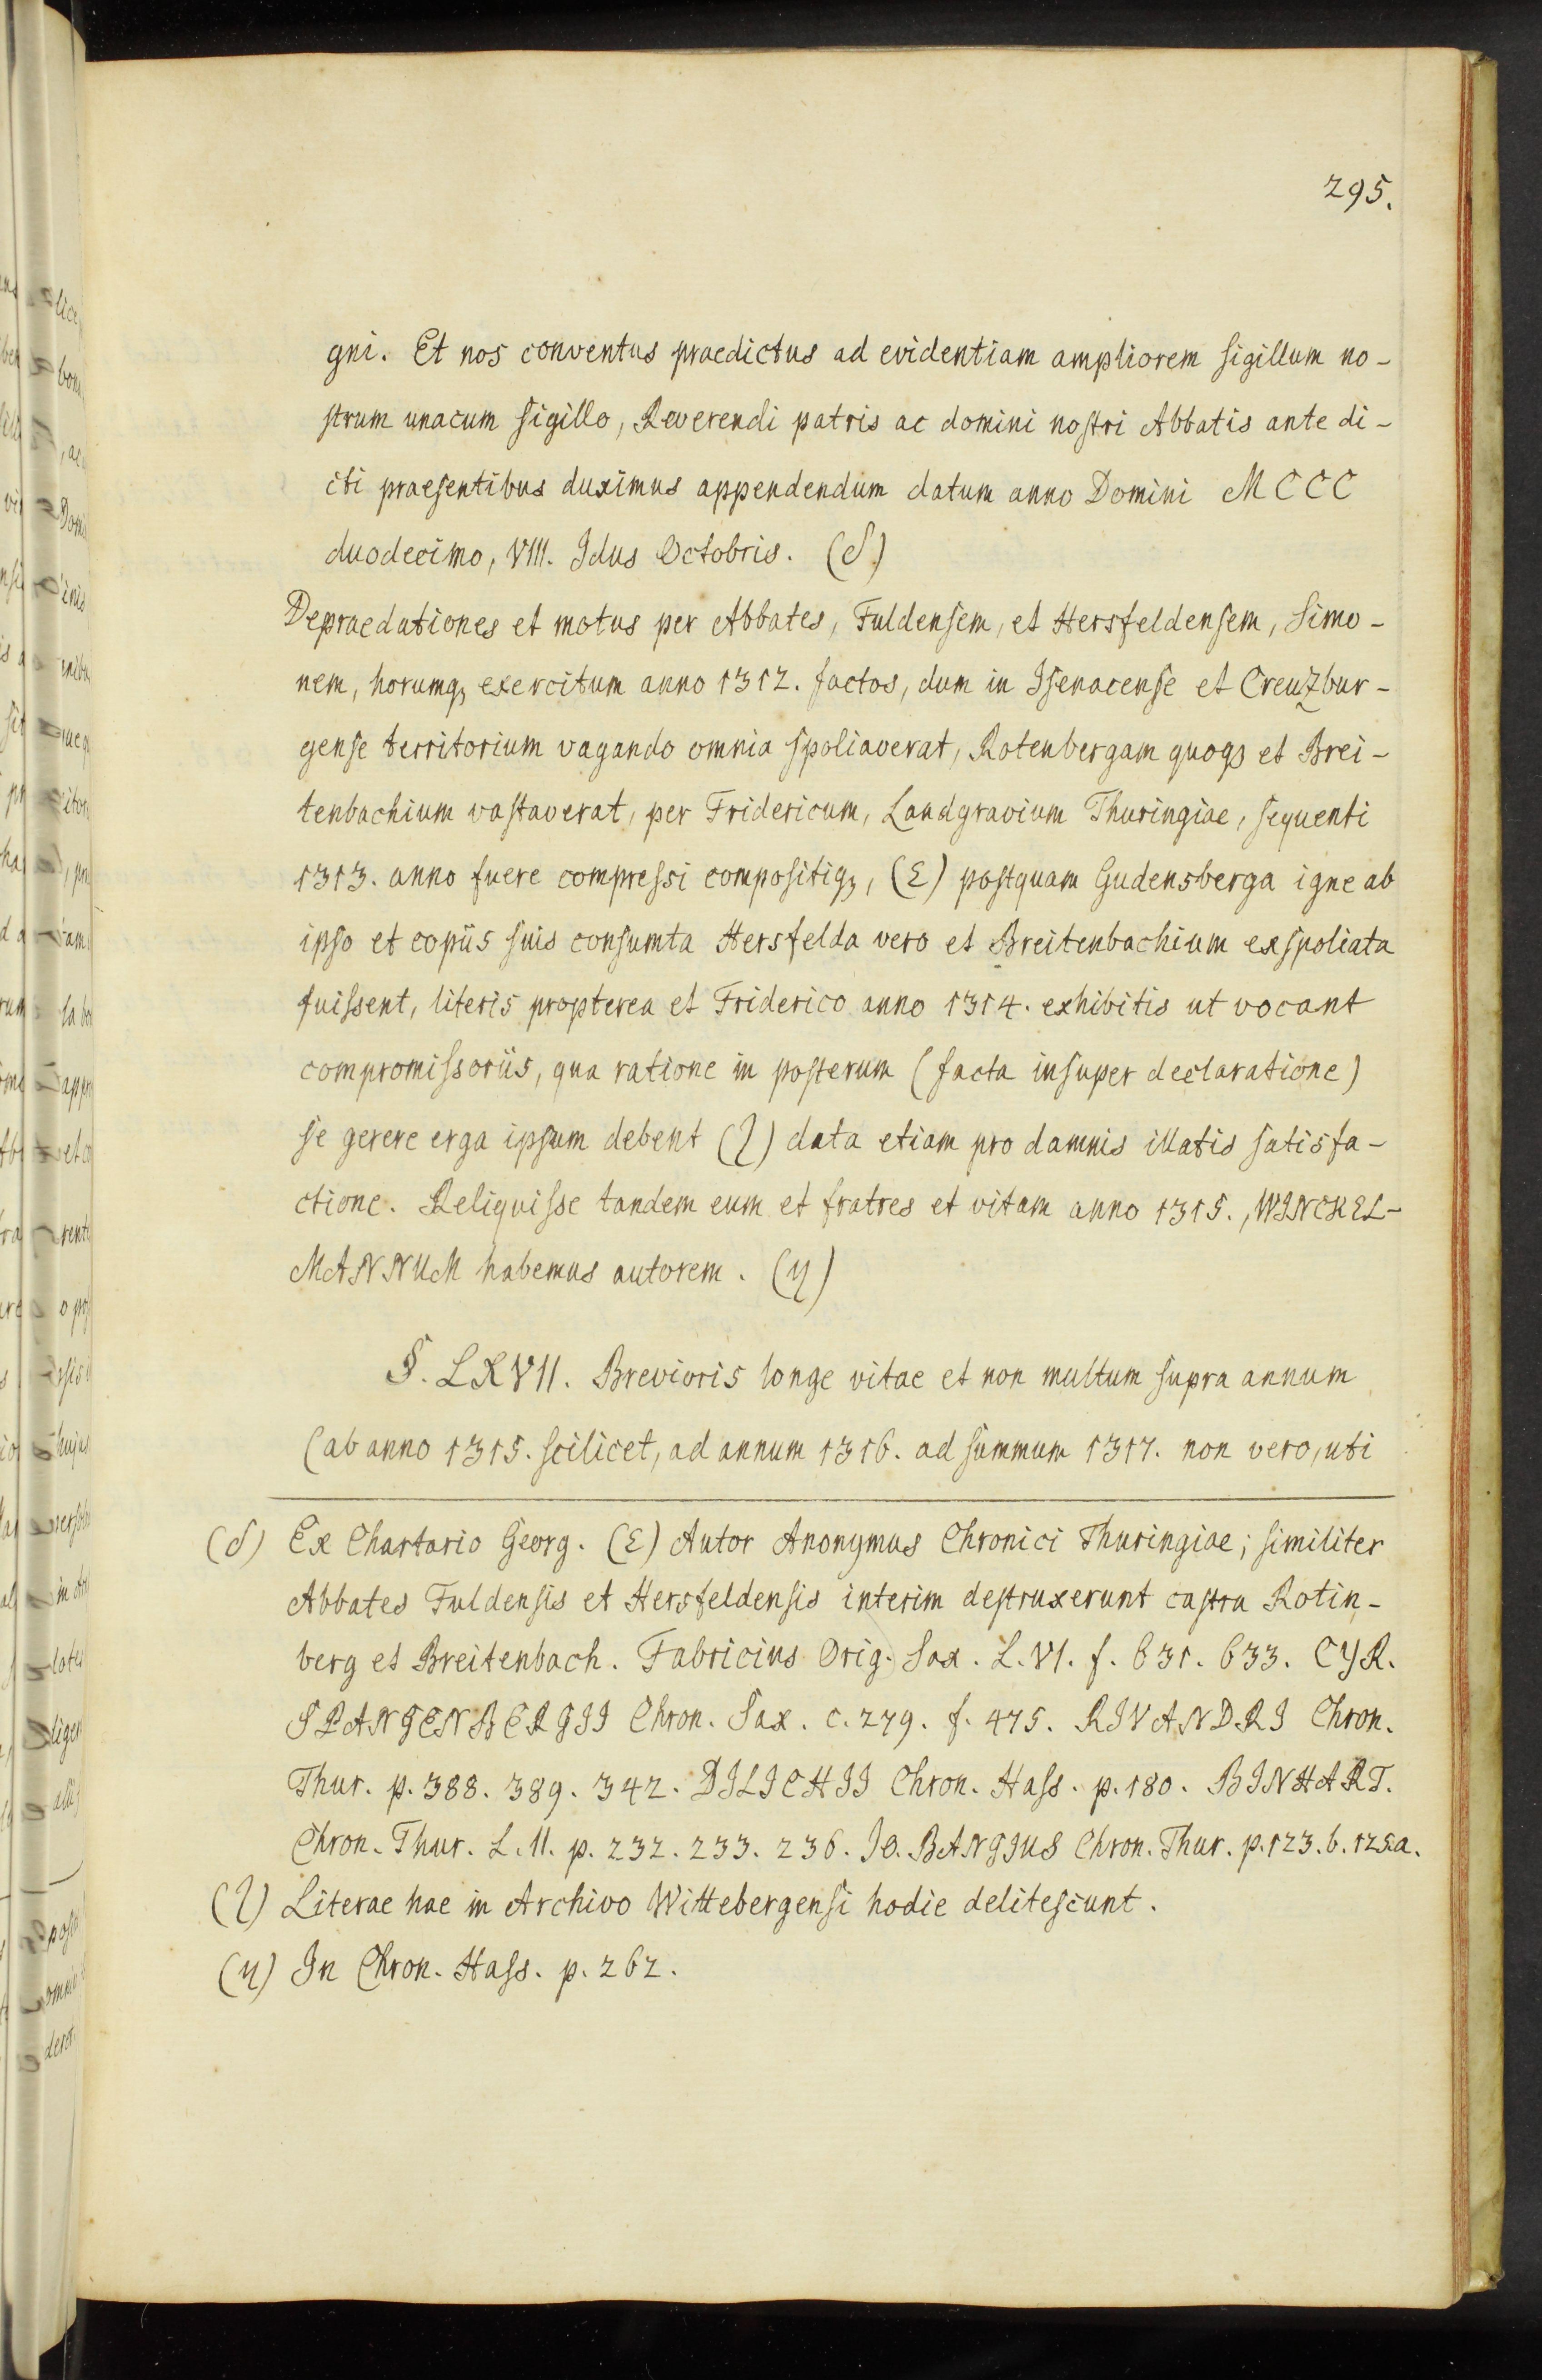 295.
gni. Et nos conventus praedictus ad evidentiam ampliorem sigillum no-
strum unacum sigillo, Reverendi patris ac domini nostri Abbatis ante di-
cti praesentibus duximus appendendum datum anno Domini MCCC
duodecimo, VIII. Idus Octobris. (δ)
Depraedationes et motus per Abbates, Fuldensem, et Hersfeldensem, Simo-
nem, horumq, exercitum anno 1312. factos, dum in Isenacense et Creuzbur-
gense territorium vagando omnia spoliaverat, Rotenbergam quoq et Brei-
tenbachium vastaverat, per Fridericum, Landgravium Thuringiae, sequenti
1313. anno fuere compressi compositiq, (ε) postquam Gudensberga igne ab
ipso et copiis suis consumta Hersfelda vero et Breitenbachium exspoliata
fuissent, literis propterea et Friderico anno 1314. exhibitis ut vocant
compromissoriis, qua ratione in posterum (facta insuper declaratione)
se gerere erga ipsum debent (ζ) data etiam pro damnis illatis satisfa-
ctione. Reliquisse tandem eum et fratres et vitam anno 1315., WINCKEL-
MANNUM habemus autorem. (η)
§. LXVII. Brevioris longe vitae et non multum supra annum
(ab anno 1315. scilicet, ad annum 1316. ad summum 1317. non vero, uti
(δ) Ex Chartario Georg. (ε) Autor Anonymus Chronici Thuringiae; similiter
Abbates Fuldensis et Hersfeldensis interim destruxerunt castra Rotin-
berg et Breitenbach. Fabricius Orig. Sax. L. VI. f. 631. 633. CYR.
SPANGENBERGII Chron. Sax. c. 279. f. 475. RIVANDRI Chron.
Thur. p. 388. 389. 342. DILICHII Chron. Hass. p. 180. BINHART.
Chron. Thur. L. II. p. 232. 233. 236. Jo. BANGIUS Chron. Thur. p. 123. b. 125.a.
(ζ) Literae hae in Archivo Wittebergensi hodie delitescunt.
(η) In Chron. Hass. p. 262.